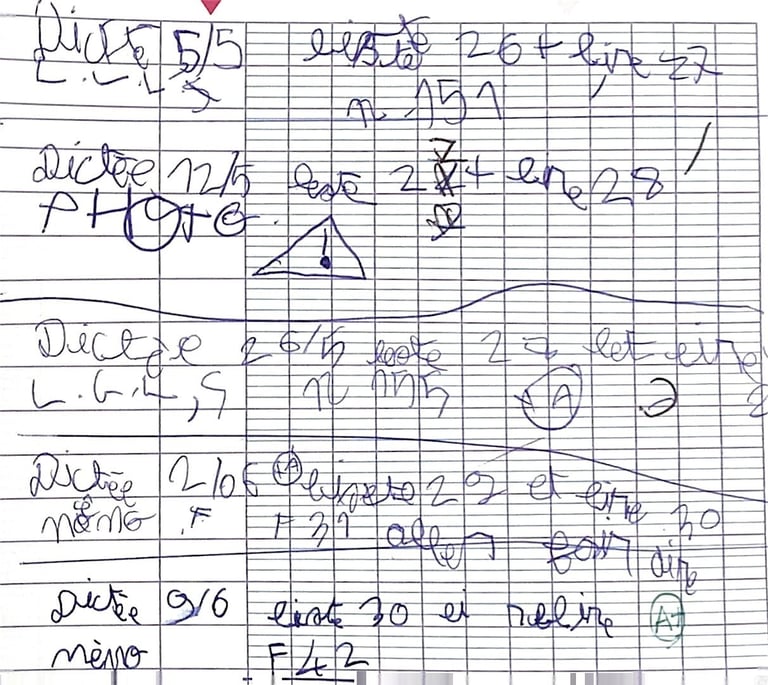 Dictée 5/5 liste 26 + lire 27
L.L.L, S n 151
Dictée 12/5 liste 2 + lire 28
PHOTO !
Dictée 26/5 liste 27 et lire
L.L.L, S n 155 +A
Dictée 2/06 +A liste 29 et lire 30
mémo F F 31 dire
Dictée 9/6 liste 30 et relire A+
mémo F 42